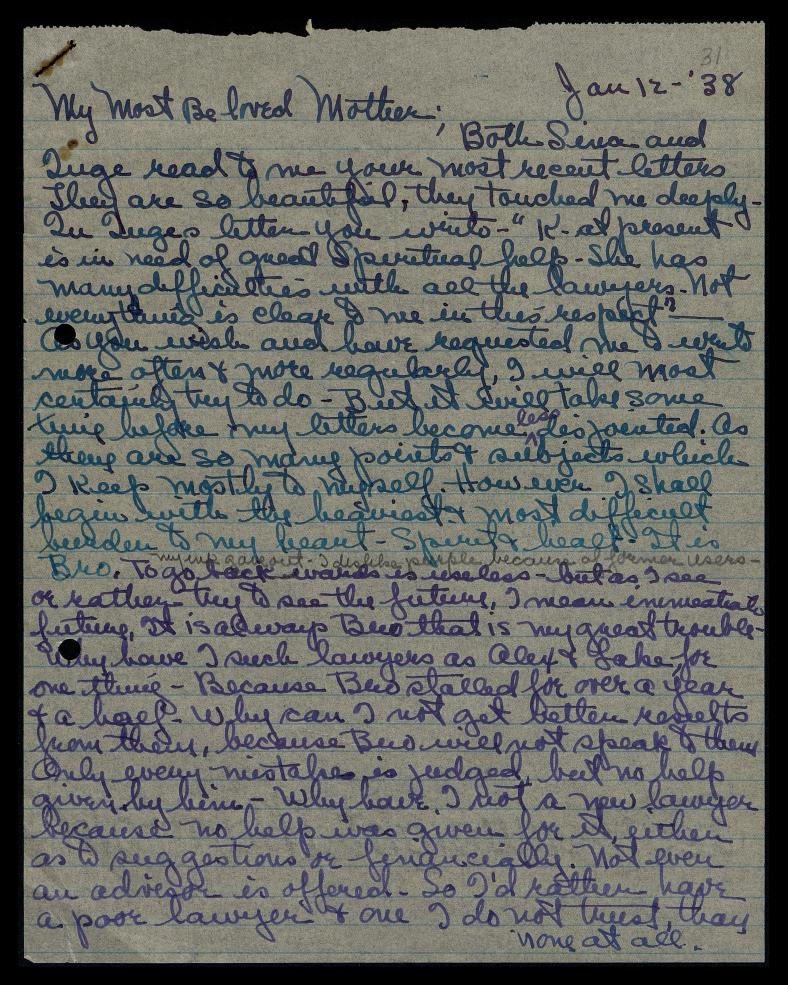 31
Jan 12-'38
My Most Beloved Mother;
Both Sina and
Inge read to me your most recent letters
They are so beautiful, they touched me deeply-
In Inges letter you write-" K- at present
is in need of great Spiritual help- She has
many difficulties with all the lawyers. Not
everything is clear to me in this respect"?—
As you wish and have requested me to write
more often & more regularly, I will most
certainly try to do- But it will take some
time before my letters become less disjointed. As
there are so many points & subjects which
I keep mostly to myself. However I shall
begin with the heaviest & most difficult
burden to my heart- Spirit & health. It is
-my ink gave out- I dislike purple because of former users-
Bro. To go backwards is useless- but as I see
or rather try to see the future, I mean immediate
future, It is always Bro that is my great trouble-
Why have I such lawyers as Alex & Lake, for
one thing- Because Bro stalled for over a year
& a half- Why can I not get better results
from them, because Bro will not speak to them
Only every mistake is judged, but no help
given by him- Why have I not a new lawyer
because no help was given for it, either
as to suggestions or financially. Not even
an advisor is offered- So I'd rather have
a poor lawyer & one I do not trust, than
none at all.